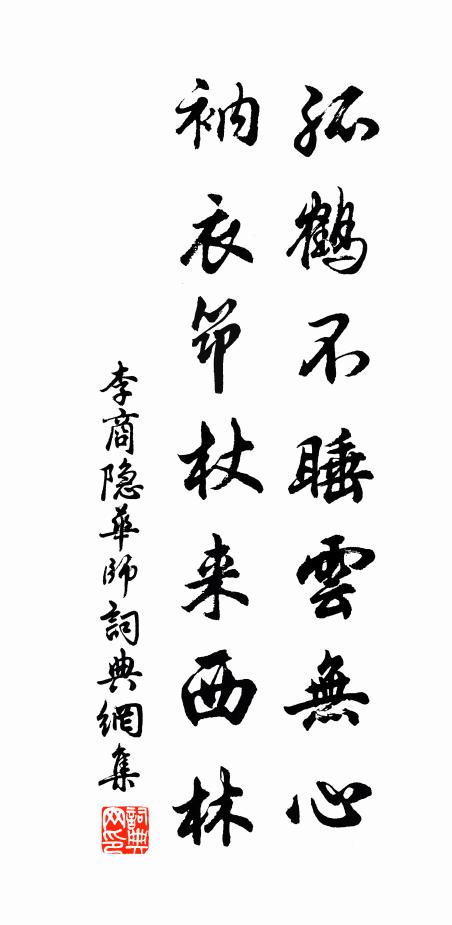 孤鶴不睡雲無心
衲衣筇杖来西林
李商隐華師詞典網集
詞典网印